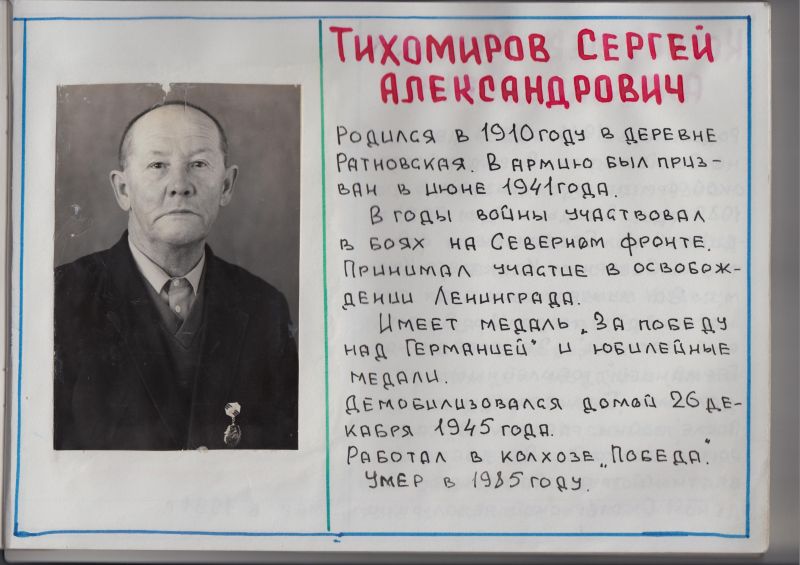 ТИХОМИРОВ СЕРГЕЙ
АЛЕКСАНДРОВИЧ
РОДИЛСЯ В 1910 ГОДУ В ДЕРЕВНЕ
РАТНОВСКАЯ. В АРМИЮ БЫЛ ПРИЗ-
ВАН В ИЮНЕ 1941 ГОДА.
В ГОДЫ ВОЙНЫ УЧАСТВОВАЛ
В БОЯХ НА СЕВЕРНОМ ФРОНТЕ.
ПРИНИМАЛ УЧАСТИЕ В ОСВОБОЖ-
ДЕНИИ ЛЕНИНГРАДА.
ИМЕЕТ МЕДАЛЬ „ЗА ПОБЕДУ
НАД ГЕРМАНИЕЙ" И ЮБИЛЕЙНЫЕ
МЕДАЛИ.
ДЕМОБИЛИЗОВАЛСЯ ДОМОЙ 26 ДЕ-
КАБРЯ 1945 ГОДА.
РАБОТАЛ В КОЛХОЗЕ „ПОБЕДА".
УМЕР В 1985 ГОДУ.